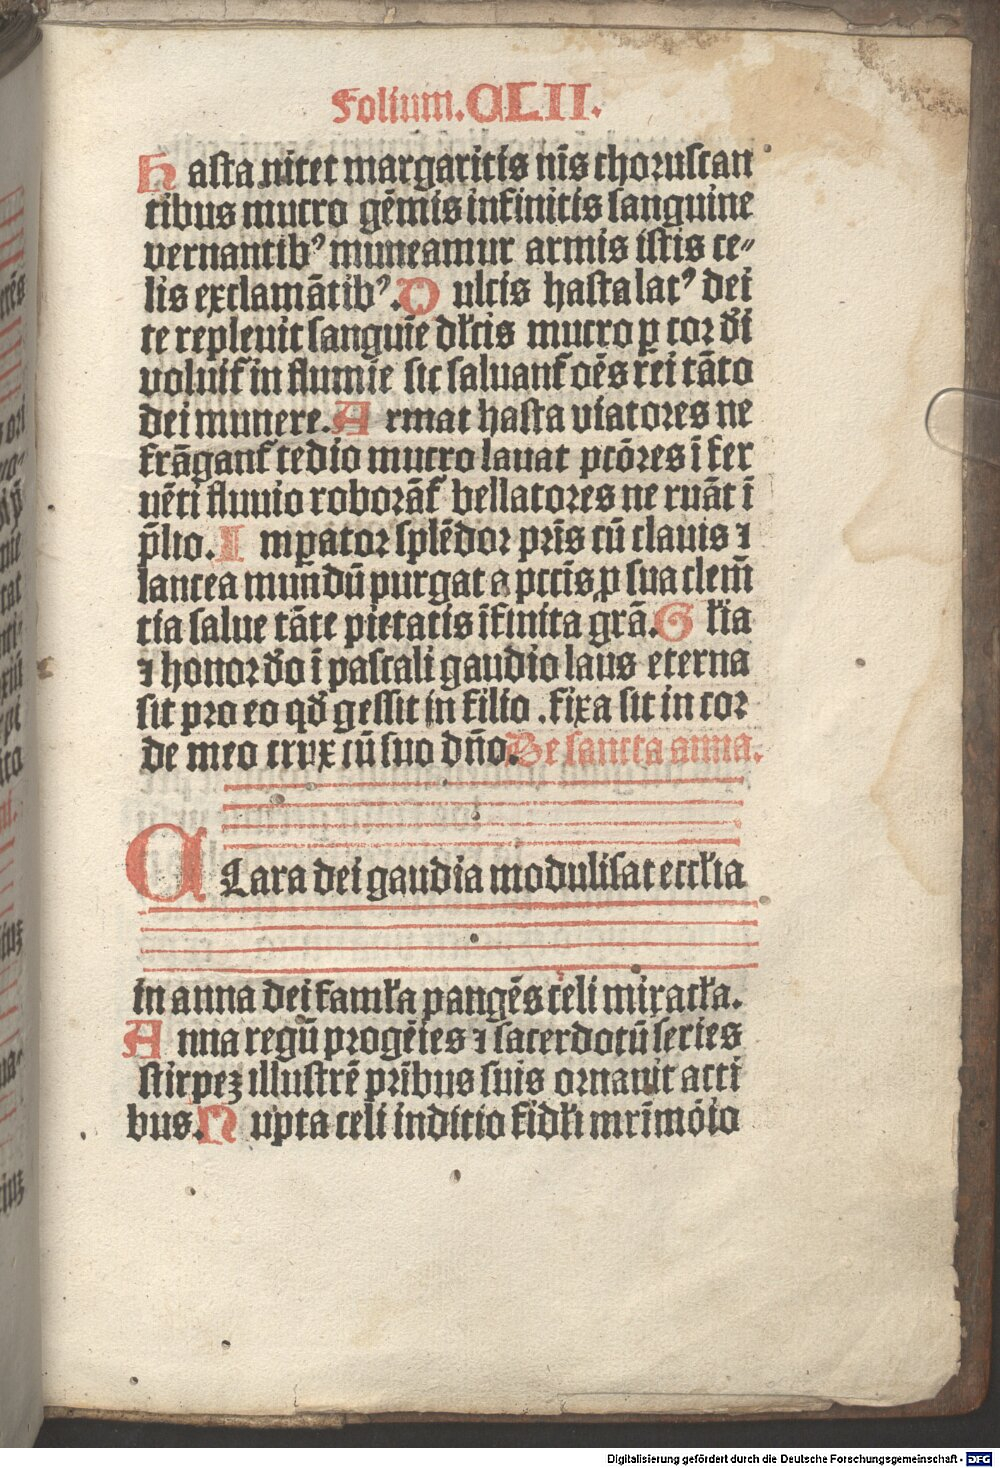 Folium.CLII.
Hasta nitet margaritis nr̄is choruscan
tibus mucro gēmis infinitis sanguine
vernantibꝰ muneamur armis istis ce⸗
lis exclamātibꝰ. Dulcis hasta latꝰ dei
te repleuit sanguīe dul̄cis mucro ꝑ cor d̄i
voluit̄ in flumīe sic saluant̄ oēs rei tāto
dei munere. Armat hasta viatores ne
frāgant̄ tedio mucro lauat pctōres ī fer
uēti fluuio roborāt̄ bellatores ne ruāt ī
p̄lio. Imꝑator splēdor pr̄is cū clauis ⁊
lancea mundū purgat a pctīs ꝓ sua clem̄
tia salue tāte pietatis īfinita grā. Gl̄ia
⁊ honor dō ī pascali gaudio laus eterna
sit pro eo qd̄ gessit in filio .fixa sit in cor
de meo crux cū suo dn̄o. De sancta anna.
CLara dei gaudia modulisat eccl̄ia
in anna dei famul̄a pangēs celi miracl̄a.
Anna regū progēies ⁊ sacerdotū series
stirpeꝫ illustrē pr̄ibus suis ornauit acti
bus. Nupta celi inditio fidel̄i mr̄imōio
Digitalisierung gefördert durch die Deutsche Forschungsgemeinschaft - DFG